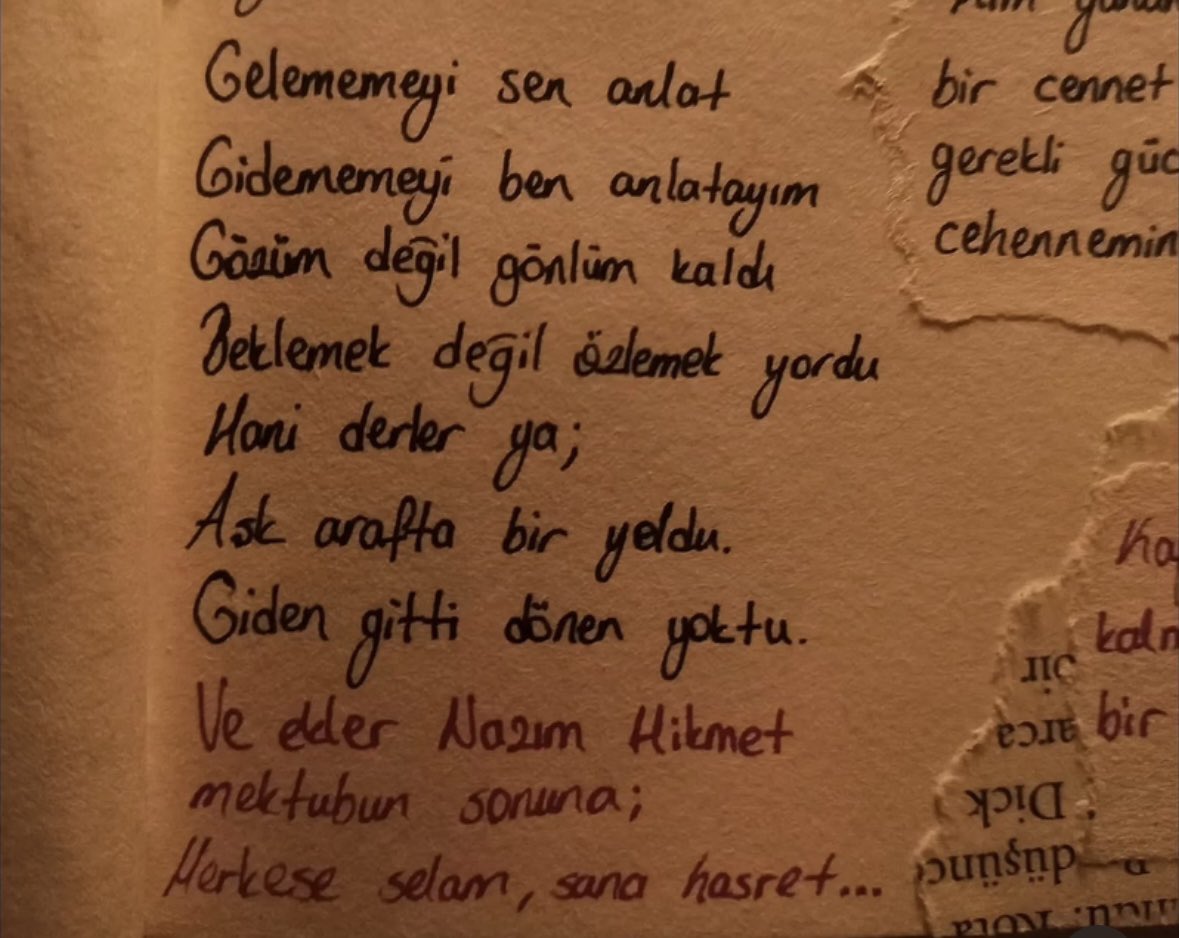 Gelememeyi sen anlat
Gidememeyi ben anlatayım
Gözüm değil gönlüm kaldı
Beklemek değil özlemek yordu
Hani derler ya;
Ask arafta bir yoldu.
Giden gitti dönen yoktu.
Ve ekler Nazım Hikmet
mektubun sonuna;
Herkese selam, sana hasret...
bir cennet
gerekli güc
cehennemin
Ka
kalm
bir
bir
arca
Dick
düşünc